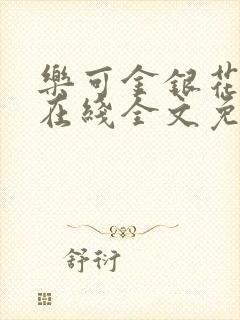 樂可金銀花
在綫全文免
舒衍